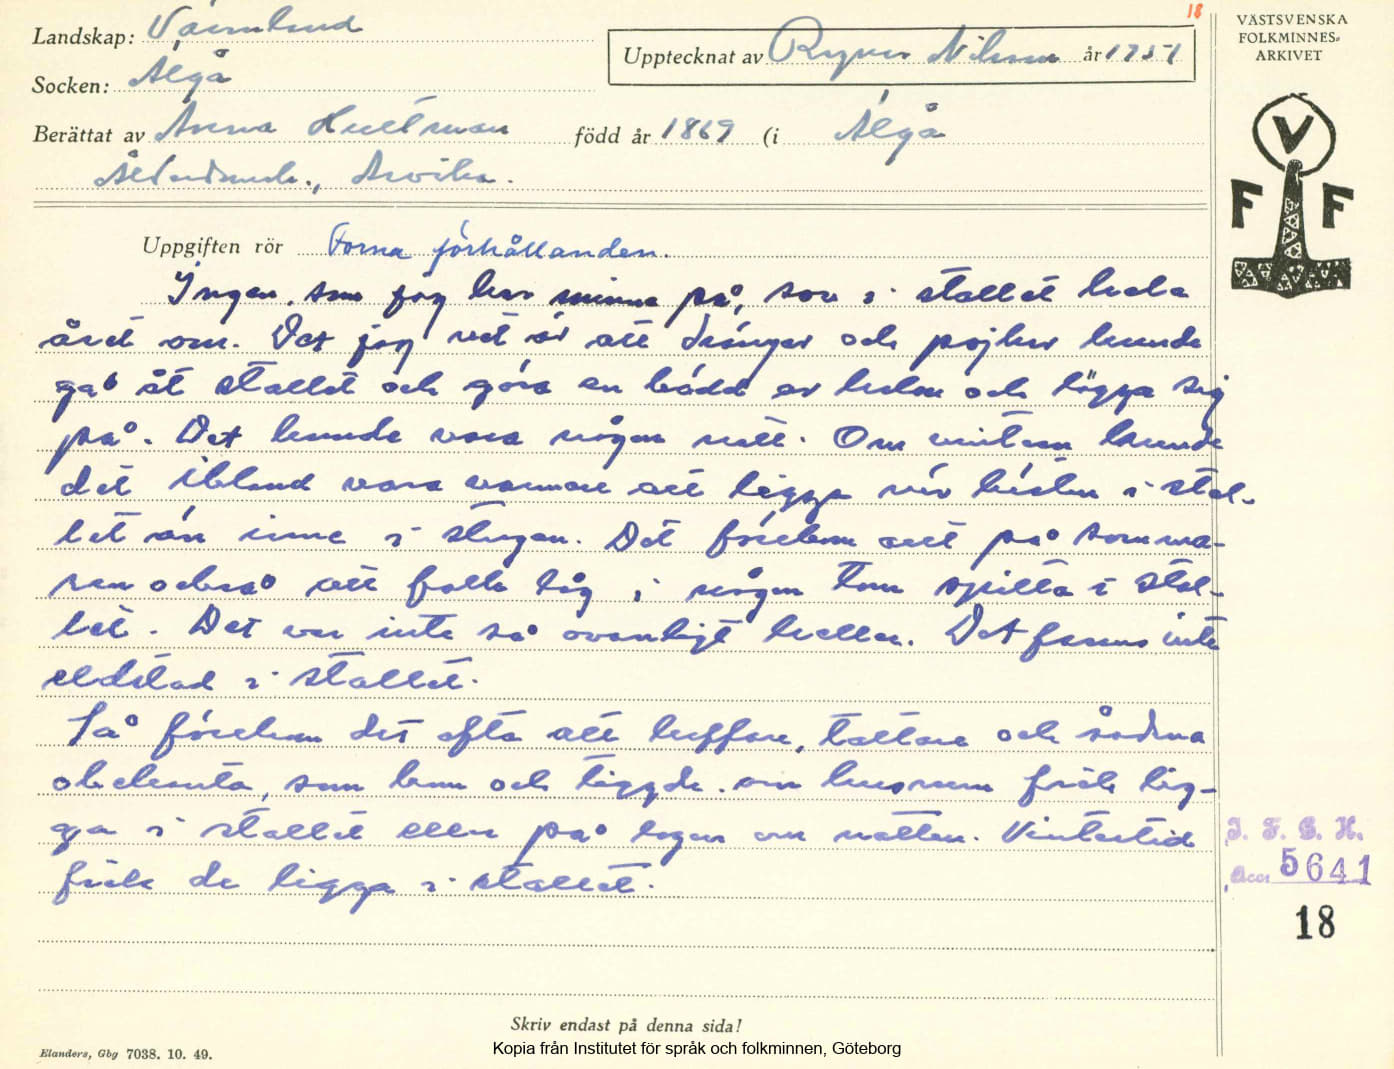 18
Landskap: Värmland
Upptecknat av Ragnar Nilsson år 1951
Socken: Älgå
Berättat av Anna Hultman född år 1869 (i Älgå
Ålderdomsh., Arvika.
VÄSTSVENSKA
FOLKMINNES-
ARKIVET
V
F F
Uppgiften rör Forna förhållanden.
Ingen, som jag har minne på, sov i stallet hela
året om. Det jag vet är att drängar och pojkar kunde
gå åt stallet och göra en bädd av halm och lägga sig
på. Det kunde vara någon natt. Om vintern kunde
det ibland vara varmare att ligga när hästen i stal-
let än inne i stugan. Det förekom att på somma-
ren också att folk låg i någon tom spilta i stal-
let. Det var inte så ovanligt heller. Det fanns inte
eldstad i stallet.
Så förekom det ofta att luffare, tattare och sådana
obekanta, som kom och tiggde om husrum fick lig-
ga i stallet eller på logen om natten. Vintertid
fick de ligga i stallet.
I. F. G. H.
Acc. 5641
18
Skriv endast på denna sida!
Elanders, Gbg 7038. 10. 49.
Kopia från Institutet för språk och folkminnen, Göteborg